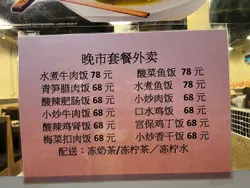 晚市套餐外卖
水煮牛肉饭 78 元 酸菜鱼饭 78 元
青笋腊肉饭 68 元 水煮鱼饭 78 元
酸辣肥肠饭 68 元 小炒肉饭 68 元
小炒牛肉饭 68 元 口水鸡饭 68 元
酸辣鸡肾饭 68 元 宫保鸡丁饭 68 元
梅菜扣肉饭 68 元 小炒香干饭 68 元
配送：冻奶茶/冻柠茶／冻柠水